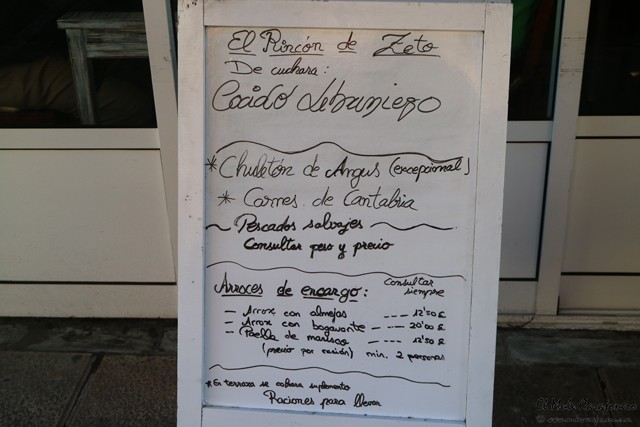 El Rincón de Zeto
De cuchara:
Cocido Lebaniego
* Chuletón de Angus (excepcional)
* Carnes de Cantabria
Pescados salvajes
Consultar peso y precio
Arroces de encargo: Consultar siempre
- Arroz con almejas --- 12'50 €
- Arroz con bogavante --- 20'00 €
- Paella de marisco --- 12'50 €
(precio por ración) min. 2 personas
* En terraza se cobrara suplemento
Raciones para llevar